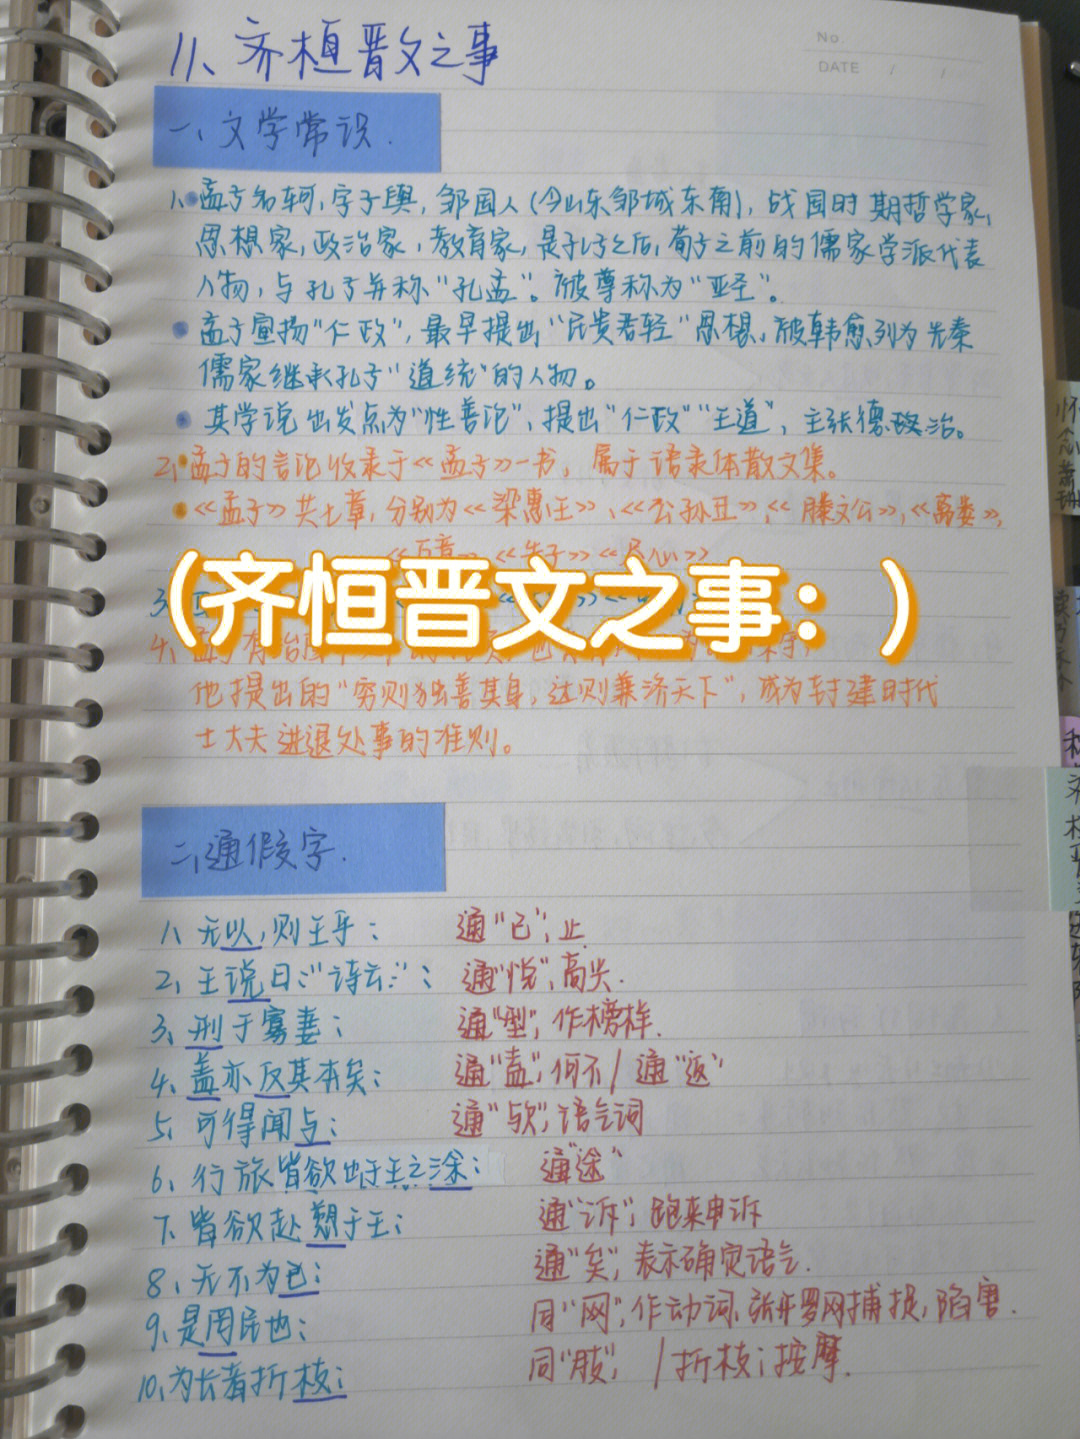 11、齐桓晋文之事
No
DATE / /
一、文学常识.
1、孟子名轲,字子舆,邹国人(今山东邹城东南),战国时期哲学家,
思想家,政治家,教育家,是孔子之后,荀子之前的儒家学派代表
人物,与孔子并称“孔孟”。被尊称为“亚圣”。
孟子宣扬“仁政”,最早提出“民贵君轻”思想,被韩愈列为先秦
儒家继承孔子“道统”的人物。
其学说出发点为“性善论”,提出“仁政”“王道”,主张德政治。
2、孟子的言论收录于《孟子》一书,属于语录体散文集。
《孟子》共七章,分别为《梁惠王》、《公孙丑》、《滕文公》,《离娄》,
(齐恒晋文之事:)
3、
4、孟子有治国
他提出的“穷则独善其身,达则兼济天下”,成为封建时代
士大夫进退处事的准则。
二、通假字.
1、无以,则王乎: 通“已”,止.
2、王说曰:“诗云:”: 通“悦”,高兴.
3、刑于寡妻: 通“型”,作榜样.
4、盖亦反其本矣: 通“盍”,何不/通“返”
5、可得闻与: 通“欤”,语气词
6、行旅皆欲出于王之涂: 通“途”
7、皆欲赴愬于王: 通“诉”,跑来申诉
8、无不为已: 通“矣”,表示确定语气.
9、是罔民也: 同“网”,作动词,张开罗网捕捉,陷害.
10、为长者折枝: 同“肢”, /折枝:按摩.
怀念萧珊